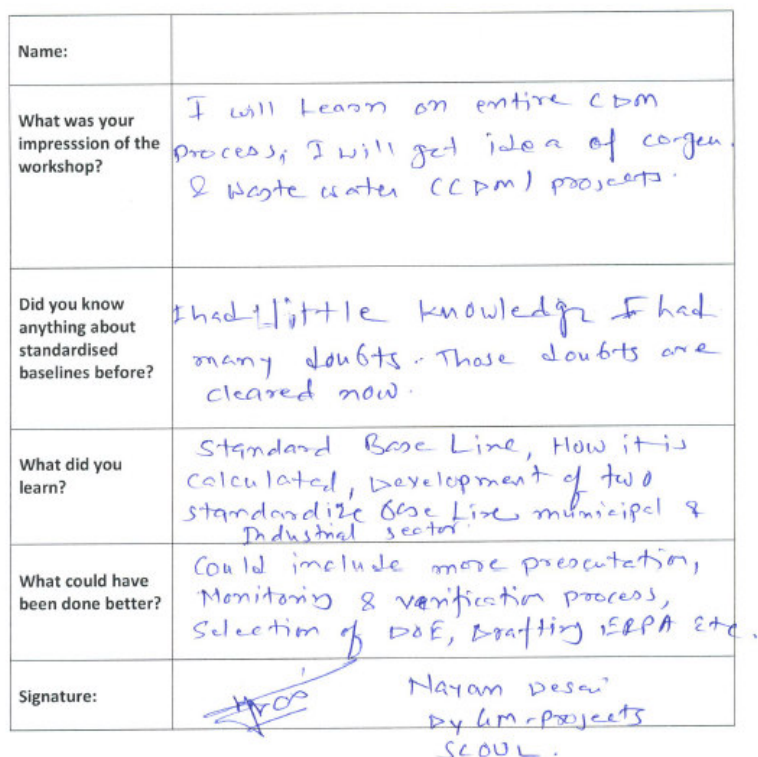 Name:
What was your
impresssion of the
workshop?
I will Learn on entire CDM
process, I will get idea of co-gen.
& Waste water (CDM) projects.
Did you know
anything about
standardised
baselines before?
I had little knowledge I had
many doubts. Those doubts are
cleared now.
What did you
learn?
Standard Base Line, How it is
calculated, Development of two
standardize Base Line municipal &
Industrial sector.
What could have
been done better?
Could include more presentation,
Monitoring & verification process,
Selection of DOE, Drafting ERPA Etc.
Signature:
Nayan Desai
Dy GM-Projects